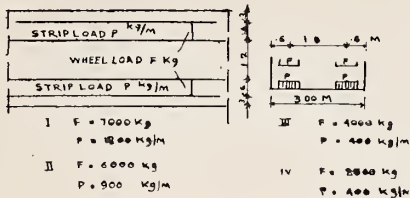 STRIP LOAD P kg/M
WHEEL LOAD F Kg
STRIP LOAD P kg/M
.6 1 8 .6 M
P P
P P
3.00 M
1 2
I F = 7000 Kg
P = 1800 Kg/M
II F = 6000 Kg
P = 900 Kg/M
III F = 4000 Kg
P = 400 Kg/M
IV F = Kg
P = 400 Kg/M